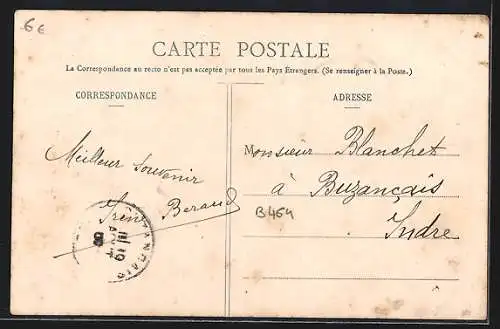 6€
CARTE POSTALE
La Correspondance au recto n'est pas acceptée par tous les Pays Étrangers. (Se renseigner à la Poste.)
CORRESPONDANCE
ADRESSE
Meilleur Souvenir
Irène Beraud
Monsieur Blanchet
à Buzançais
Indre
B454